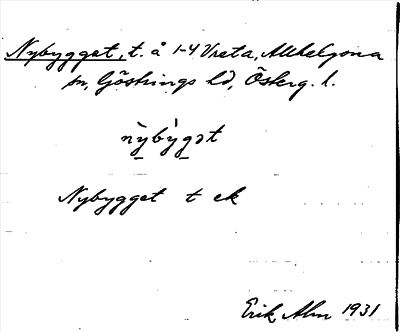 Nybygget, t. å 1-4 Vreta, Allhelgona
sn, Göstrings hd, Österg. l.
nỳbỳgət
Nybygget t ek
Erik Alm 1931